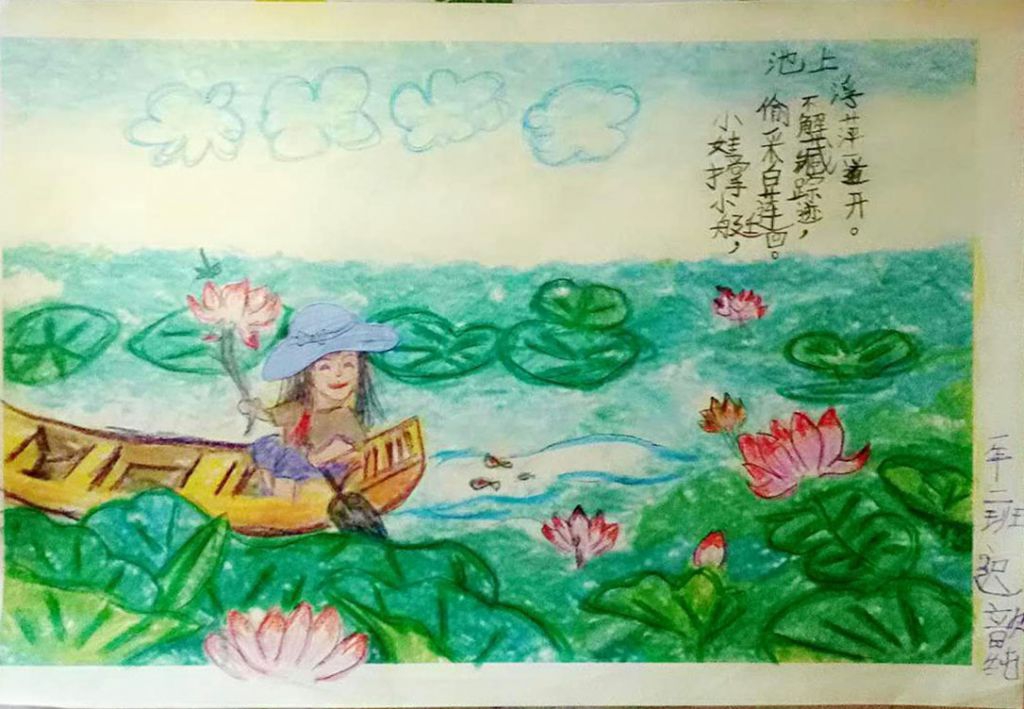 池上
小娃撑小艇，
偷采白莲回。
不解藏踪迹，
浮萍一道开。
一年二班